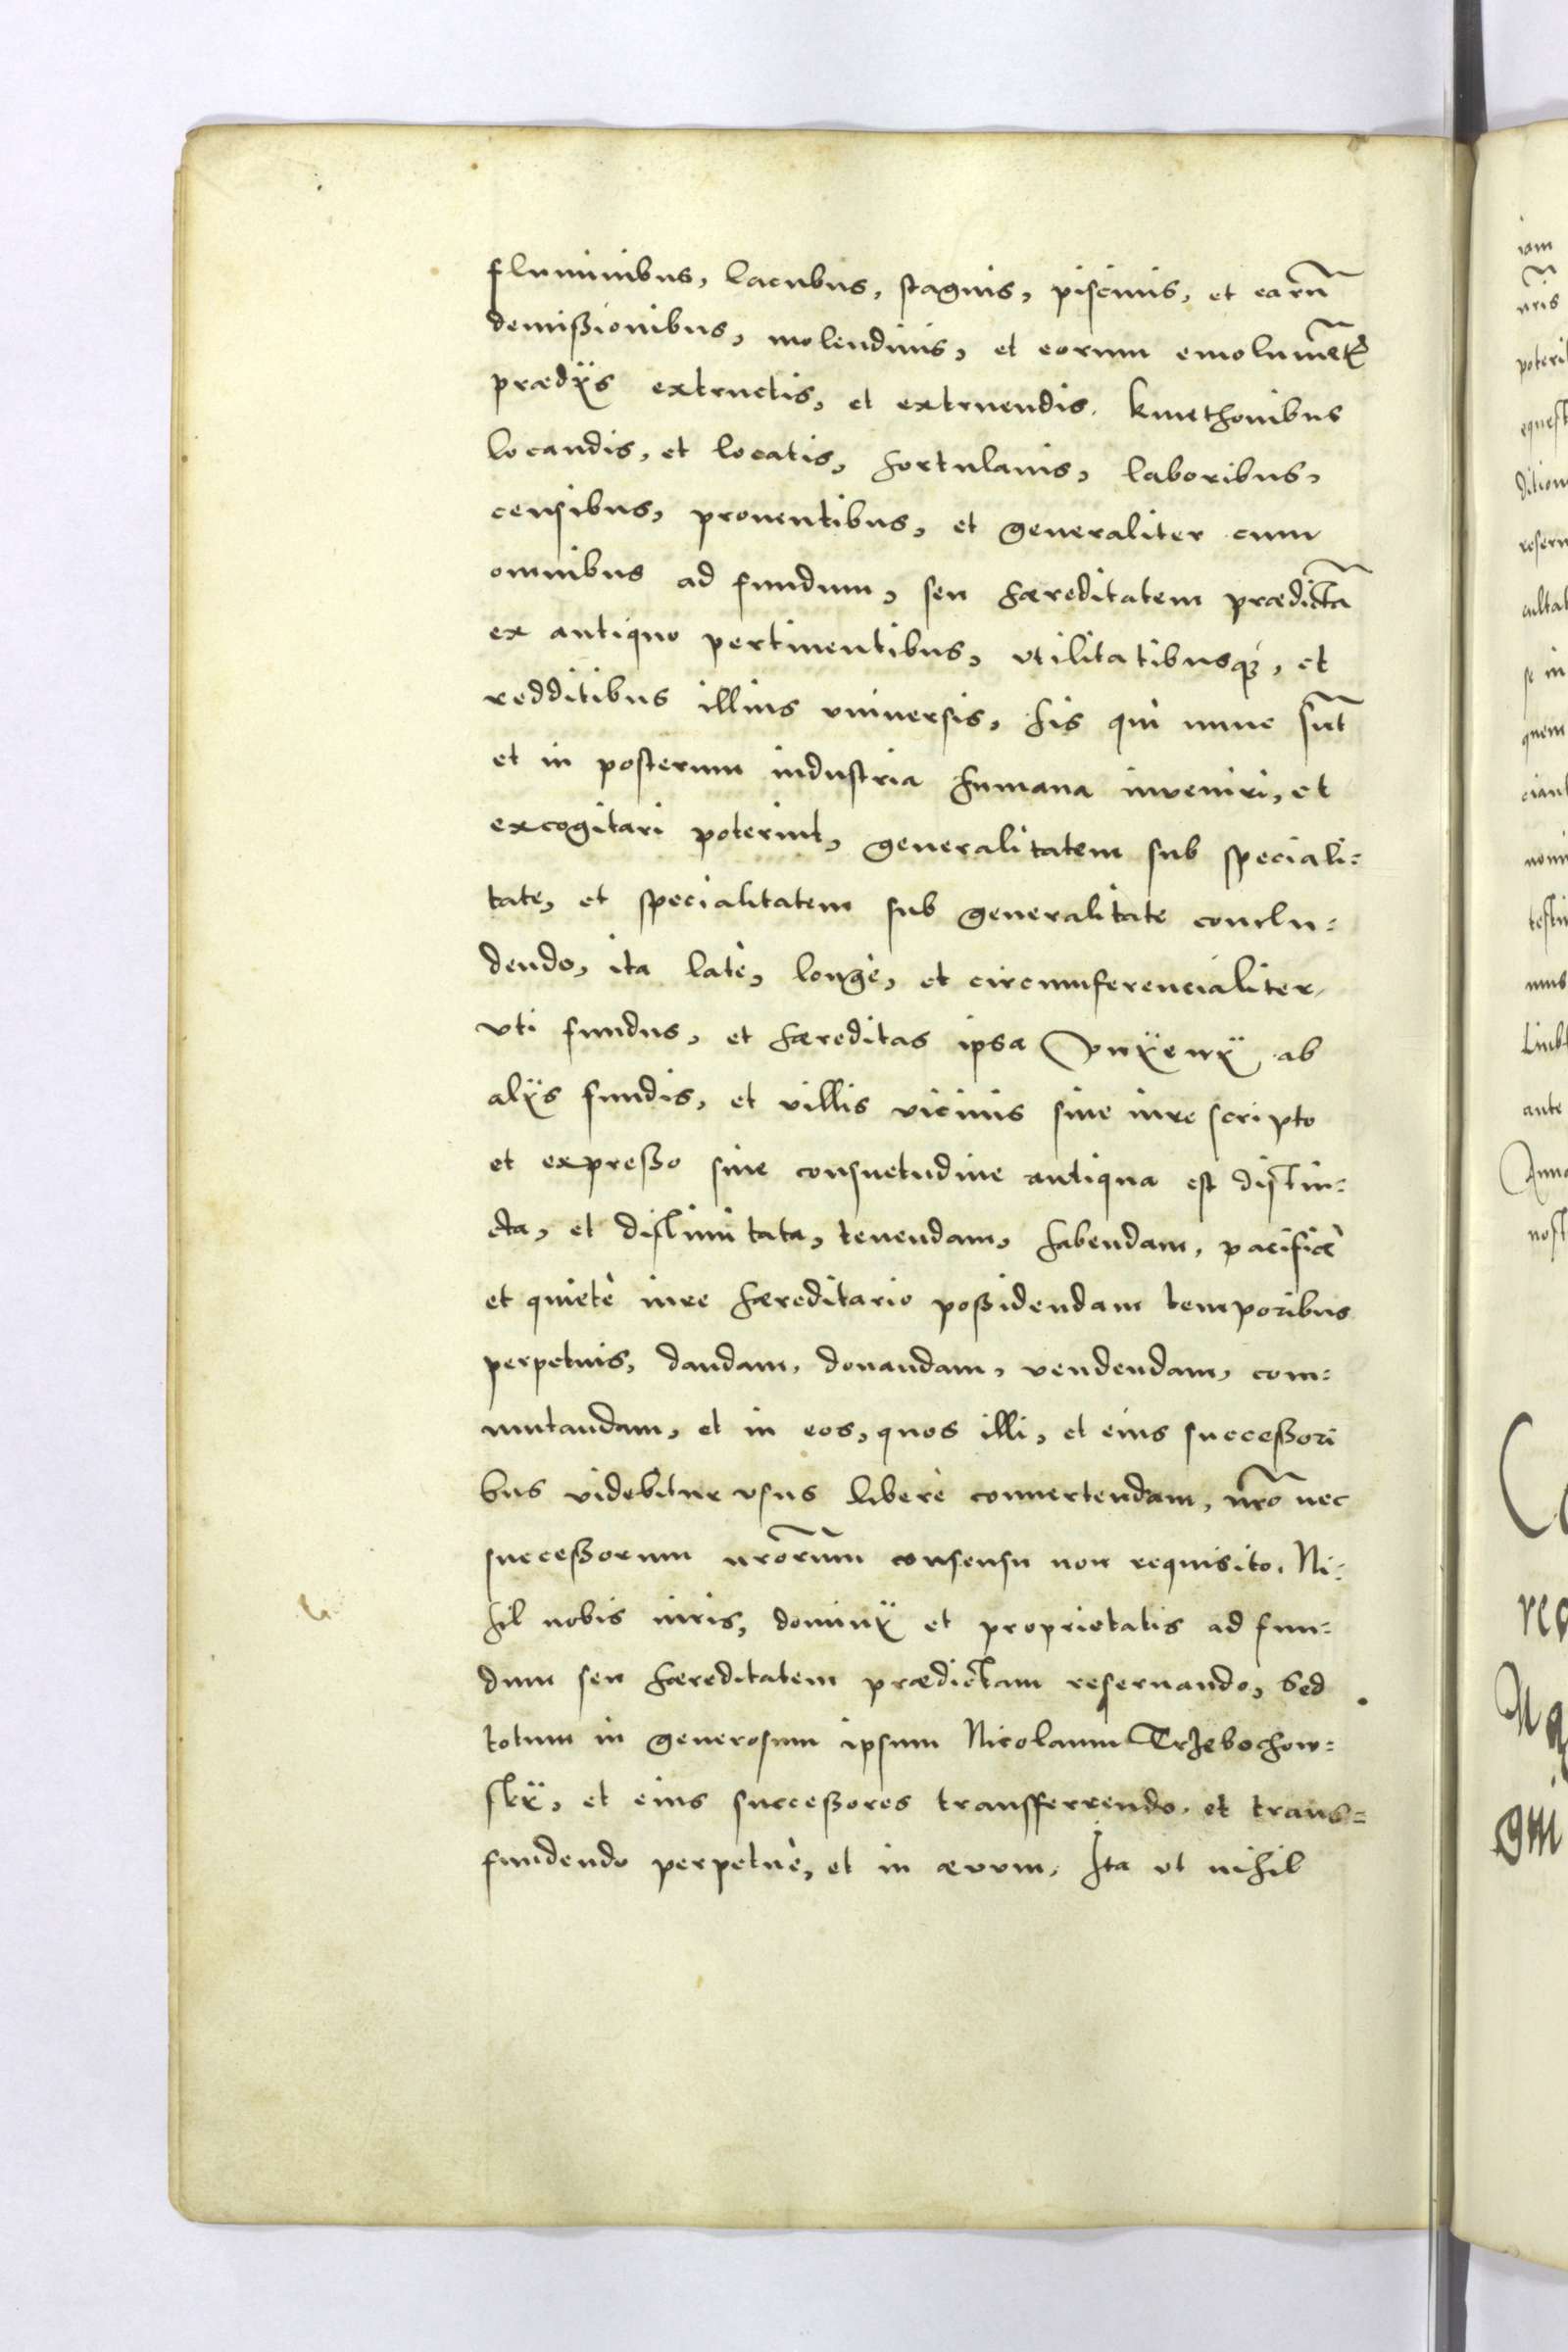 fluminibus, lacubus, stagnis, piscinis, et earũ
demißionibus, molendinis, et eorum emolumẽt
prædÿs extructis, et extruendis. kmethonibus
locandis, et locatis, hortulanis, laboribus,
censibus, prouentibus, et generaliter cum
omnibus ad fundum, seu hæreditatem prædictã
ex antiquo pertinentibus, vtilitatibusq́, et
redditibus illius vniuersis, his qui nunc sũt
et in posterum industria humana inveniri, et
excogitari poterint, generalitatem sub speciali=
tate, et specialitatem sub generalitate conclu=
dendo, ita latè, longè, et circumferencialiter,
vti fundus, et hæreditas ipsa ab
alÿs fundis, et villis vicinis siue iure scripto
et expreßo siue consuetudine antiqua est distin=
cta, et dislimitata, tenendam, habendam, pacificè
et quietè iure hæreditario poßidendam temporibus
perpetuis, dandam, donandam, vendendam, com=
mutandam, et in eos, quos illi, et eius succeßori
bus videbitur vsus liberè conuertendam, nr̃o nec
succeßorum nr̃orum consensu non requisito. Ni=
hil nobis iuris, dominÿ et proprietatis ad fun=
dum seu hæreditatem prædictam reseruando, Sed
totum in generosum ipsum Nicolaum Trzebochow=
skÿ, et eius succeßores transfferrendo. et trans=
fundendo perpetuè, et in ævum, Ita vt nihil